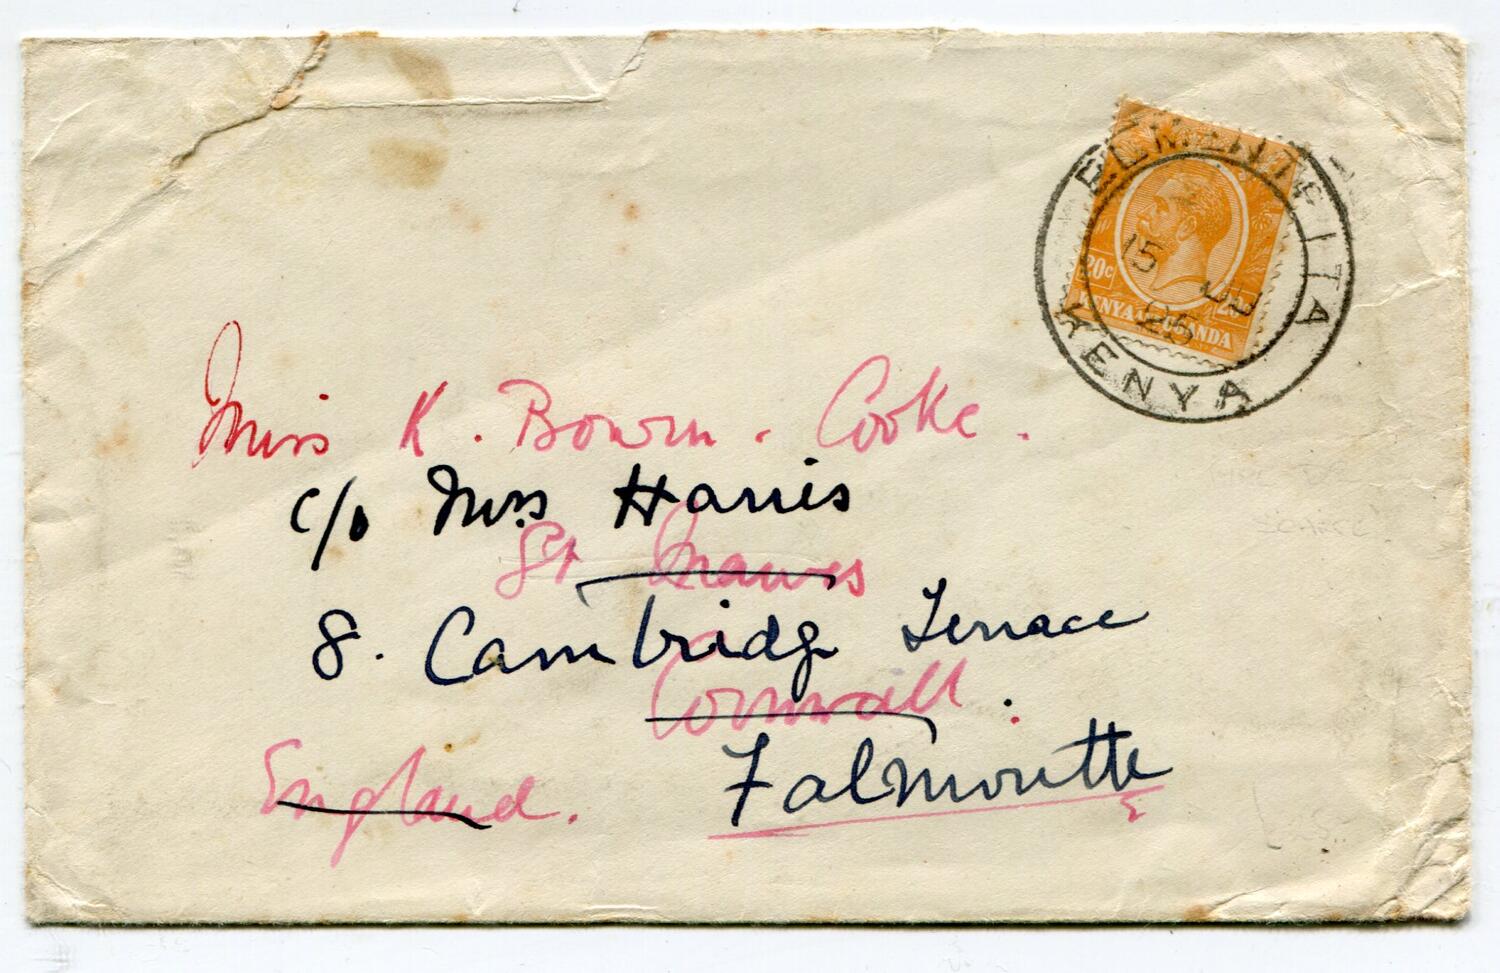 ELMENTEITA
15 JU
25
KENYA
20c
KENYA AND UGANDA
Miss K. Bowen-Cooke.
c/o Mrs Harris
St Mawes
8. Cambridge Terrace
Cornwall.
England. Falmouth